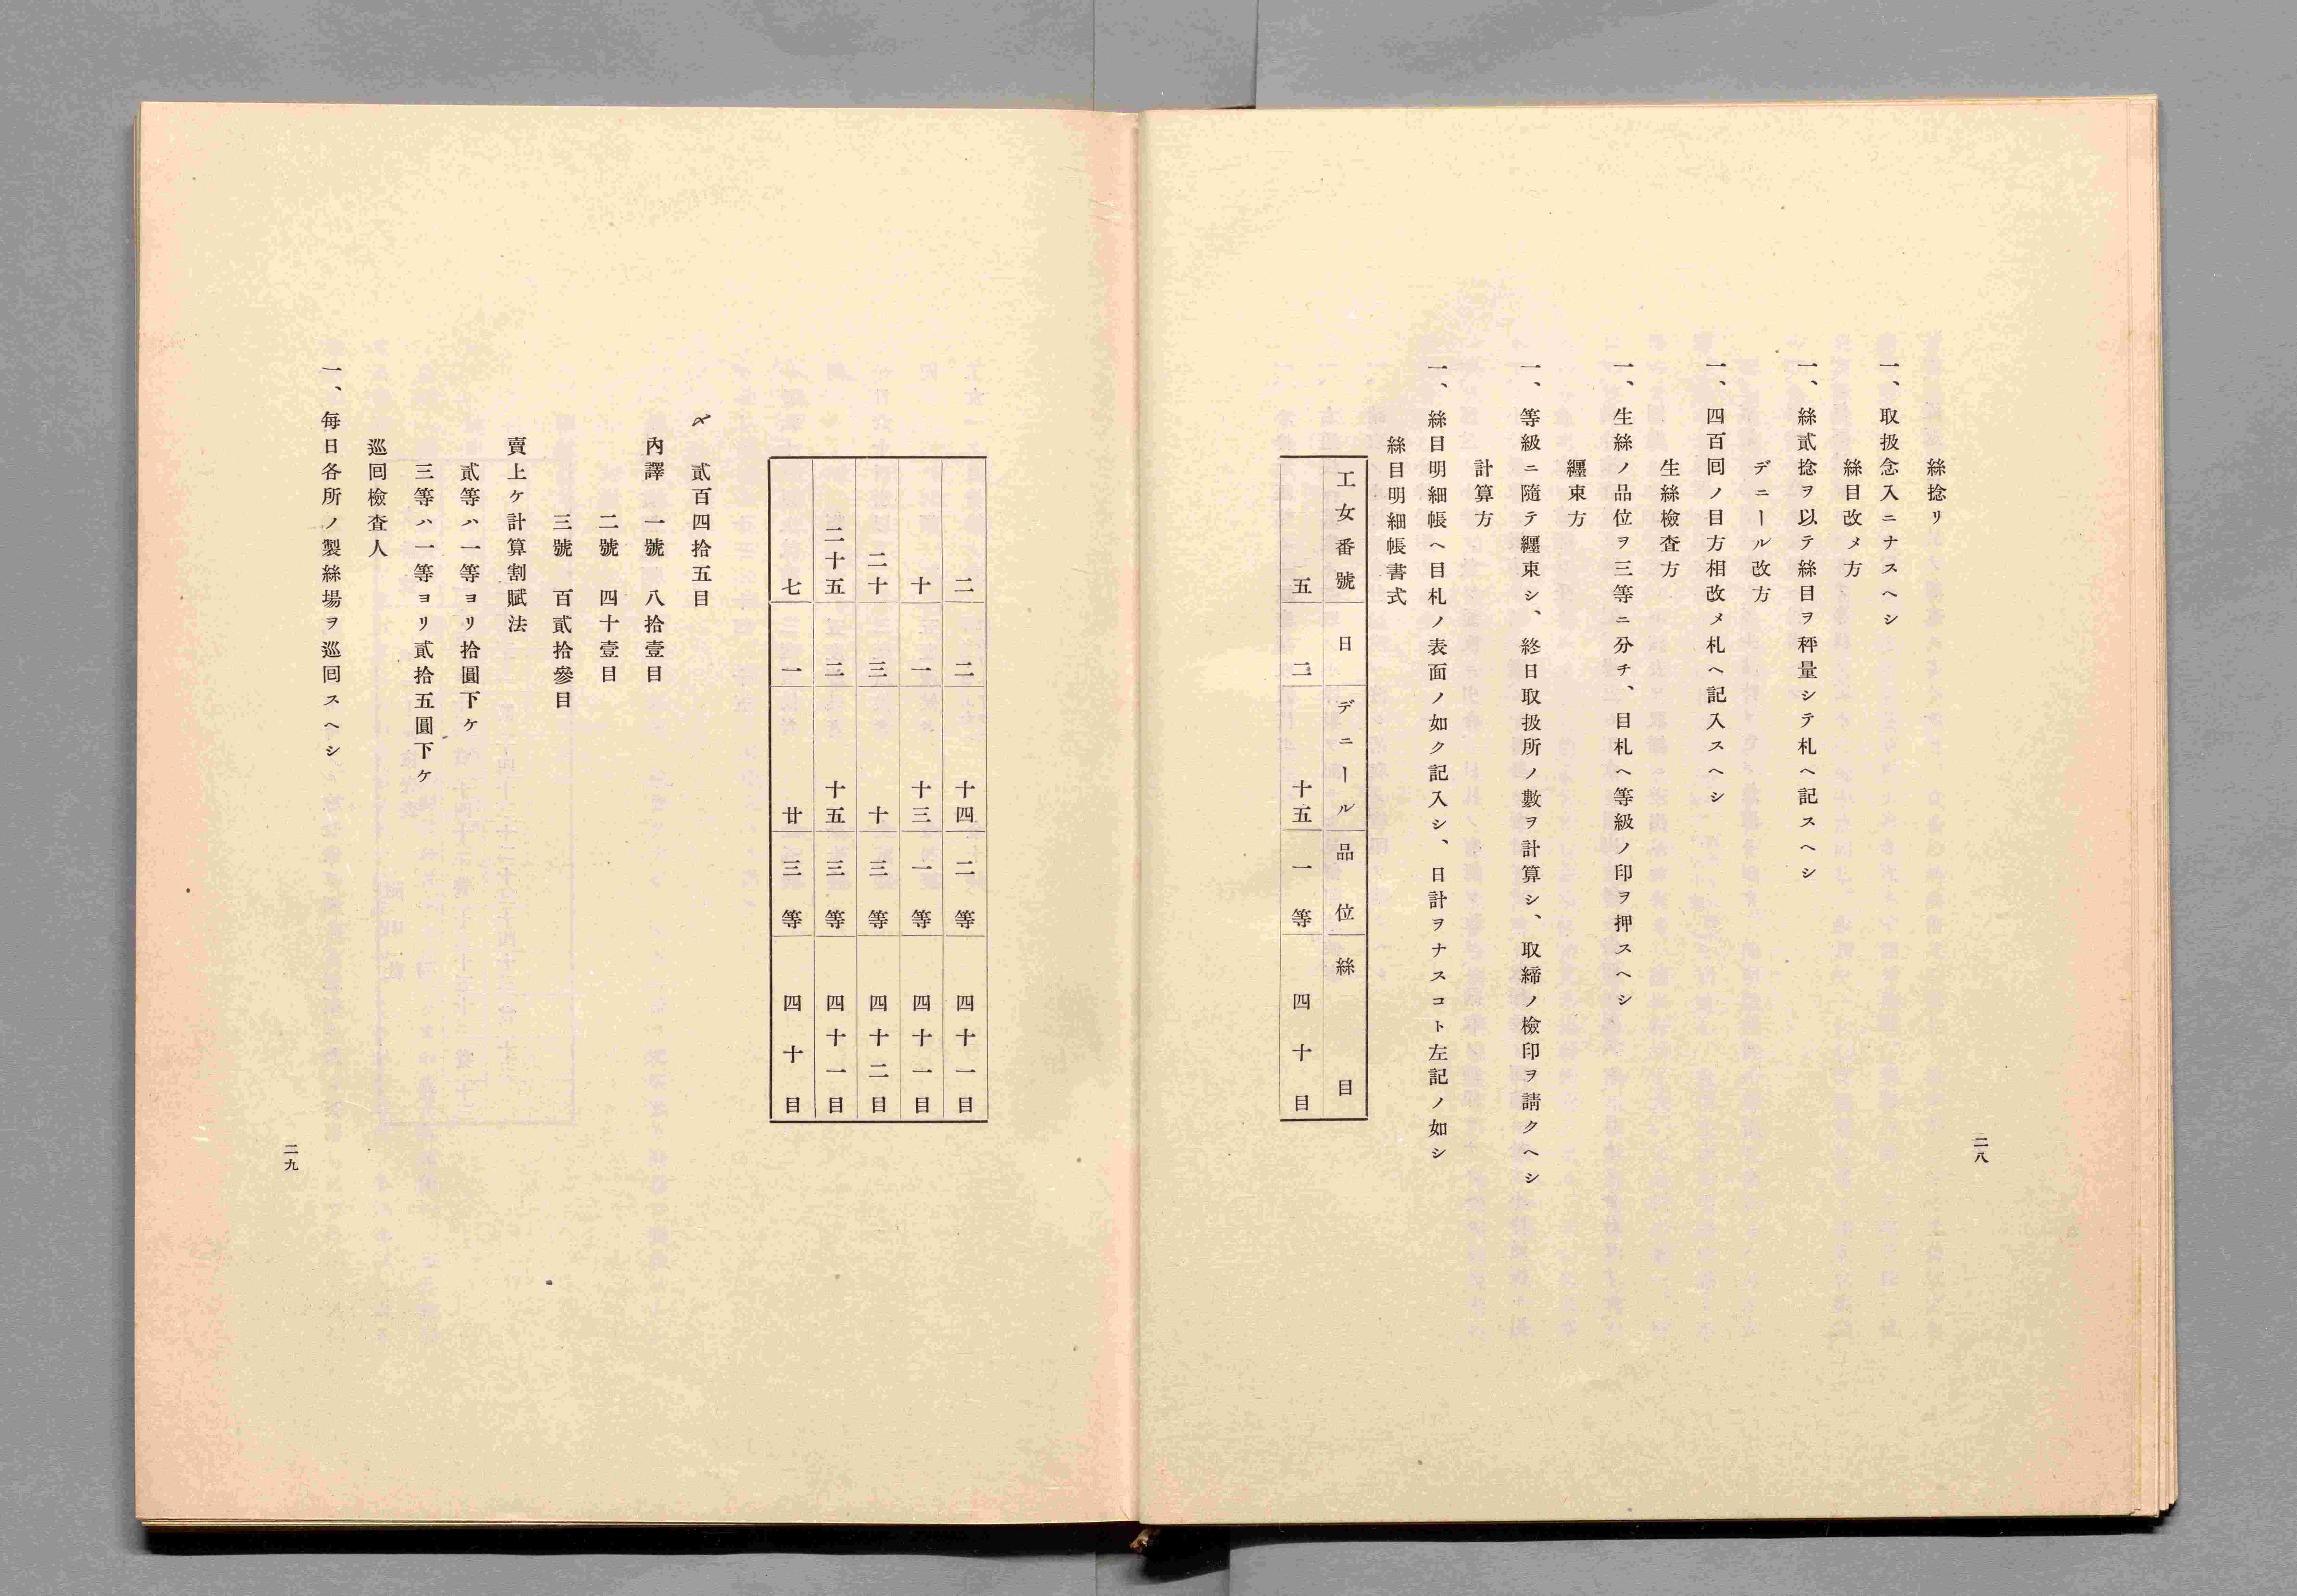 二八
絲捻リ
一、取扱念入ニナスヘシ
絲目改メ方
一、絲貳捻ヲ以テ絲目ヲ秤量シテ札ヘ記スヘシ
デニール改方
一、四百回ノ目方相改メ札ヘ記入スヘシ
生絲檢査方
一、生絲ノ品位ヲ三等ニ分チ、目札ヘ等級ノ印ヲ押スヘシ
纒束方
一、等級ニ隨テ纒束シ、終日取扱所ノ數ヲ計算シ、取締ノ檢印ヲ請クヘシ
計算方
一、絲目明細帳ヘ目札ノ表面ノ如ク記入シ、日計ヲナスコト左記ノ如シ
絲目明細帳書式
工女番號 日 デニール 品位 絲目
五 二 十五 一等 四十目
二 二 十四 二等 四十一目
十 一 十三 一等 四十一目
二十 三 十 三等 四十二目
二十五 三 十五 三等 四十一目
七 一 廿 三等 四十目
〆 貳百四拾五目
內譯 一號 八拾壹目
二號 四十壹目
三號 百貳拾參目
賣上ケ計算割賦法
貳等ハ一等ヨリ拾圓下ケ
三等ハ一等ヨリ貳拾五圓下ケ
巡回檢査人
一、每日各所ノ製絲場ヲ巡回スヘシ
二九